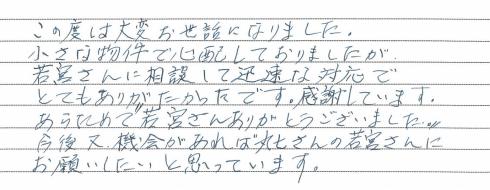 この度は大変お世話になりました。
小さな物件で心配しておりましたが、
若宮さんに相談して迅速な対応で
とてもありがたかったです。感謝しています。
あらためて"若宮さんありがとうございました。"
今後又、機会があれば丸七さんの若宮さんに
お願いしたいと思っています。